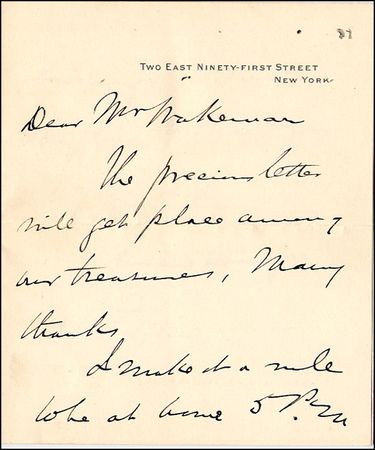 Two East Ninety-First Street
New York
Dear Mr Wakeman
The precious letter
will get place among
our treasures, Many
thanks
I make it a rule
to be at home 5 P.M